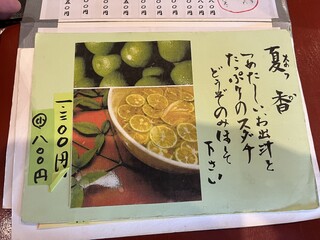 夏香
なつ
つめたーいお出汁と
たっぷりのスダチ
どうぞのみほして
下さい
一、三〇〇円
中 八〇〇円